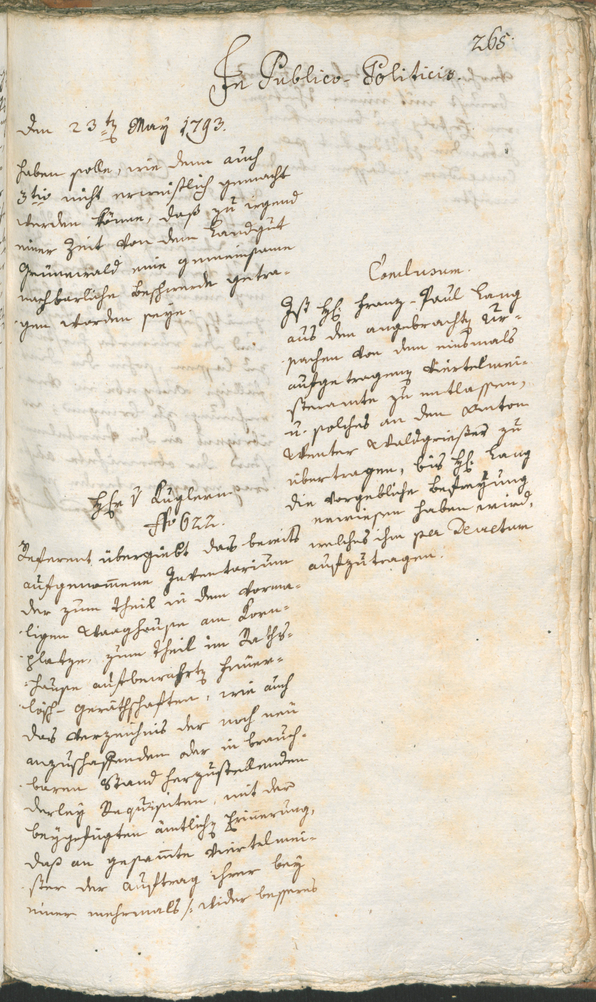 265.
In Publico-Politicis.
den 23tꝫ May 1793.
haben solle, wie dann auch
3tio nicht erweißlich gemacht
werden könne, daß zu irgend
einer Zeit von dem Landgut
Grünewald eine gemeinsame
nachbarliche Beschwerde getra-
gen worden seye.
Conclusum.
Ist H: Frantz-Paul Lang
aus den angebrachtꝫ Ur-
sachen von dem einsmals
aufgetragenꝫ Viertelmei-
steramte zu entlassen,
u. solches an den Anton
Wenter Waldgrießer zu
übertragen, bis H: Lang
die vorgebliche Befreyung
erwiesen haben wird,
welches ihm per Decretum
aufzutragen.
H: v Kuglern
No 622.
Referent übergiebt das bereits
aufgenommene Inventarium
der zum Theil in dem vorma-
ligen Waaghause am Korn-
platze, zum Theil im Raths-
hause aufbewahrtꝫ Feuer-
lösch-geräthschaften, wie auch
das Verzeichnis der noch neu
anzuschaffenden oder in brauch-
baren Stand herzustellenden
derley Requisiten, mit der
beygefügten ämtlichꝫ Erinnerung,
daß an gesamte Viertelmei-
ster der Auftrag ihrer bey
einer mehrmals /: wider besseres